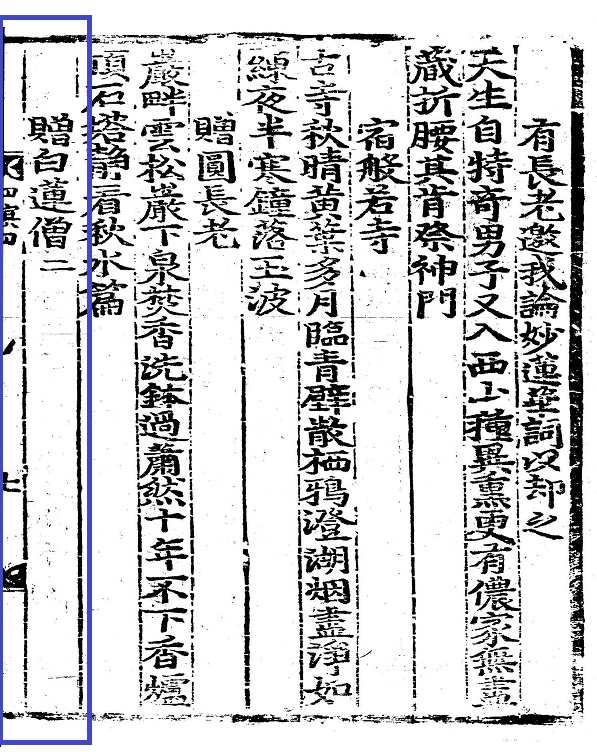 有長老邀我論妙蓮垂詞以却之
天生自特奇男子又入西山種異熏更有儂家無盡
藏折腰其肯祭神門
宿般若寺
古寺秋晴黃葉多月臨青壁散栖鴉澄湖烟盡淨如
練夜半寒鐘落玉波
贈圓長老
巖畔雲松巖下泉焚香洗鉢過蕭然十年不下香爐
頂石塔靜看秋水篇
贈白蓮僧二
七